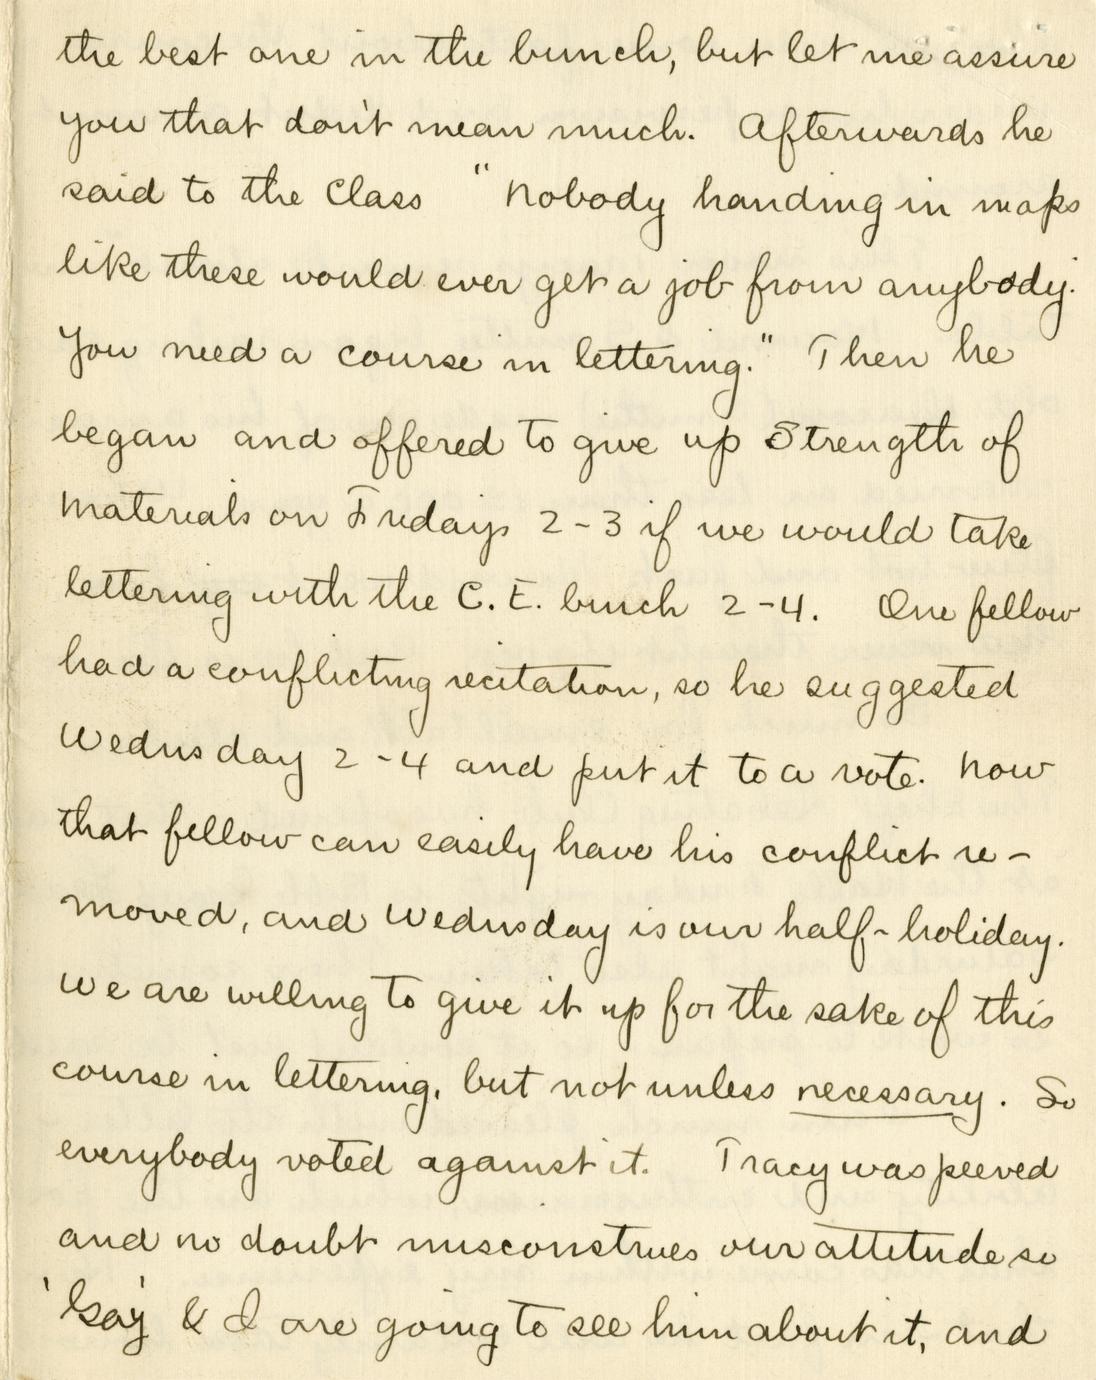 the best one in the bunch, but let me assure
you that don't mean much. Afterwards he
said to the Class "Nobody handing in maps
like these would ever get a job from anybody.
You need a course in lettering." Then he
began and offered to give up Strength of
Materials on Fridays 2-3 if we would take
lettering with the C.E. bunch 2-4. One fellow
had a conflicting recitation, so he suggested
Wednsday 2-4 and put it to a vote. Now
that fellow can easily have his conflict re-
moved, and Wednsday is our half-holiday.
We are willing to give it up for the sake of this
course in lettering, but not unless necessary. So
everybody voted against it. Tracy was peeved
and no doubt misconstrues our attitude so
& I are going to see him about it, and